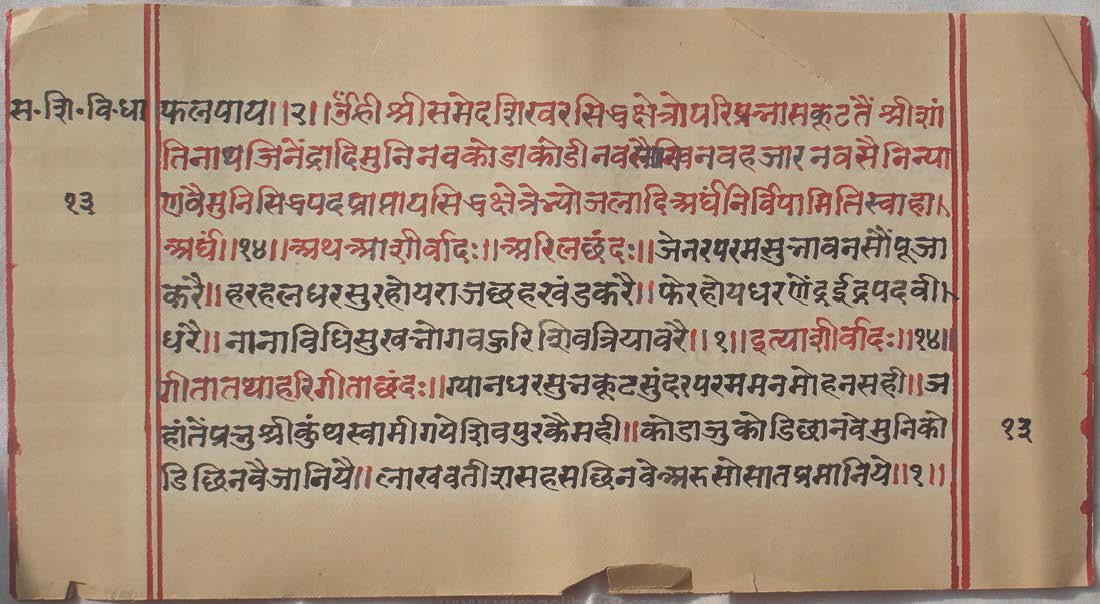 स.शि.वि.धा फलपाय।।२।। ॐह्रीं श्रीसमेदशिखरसिद्धक्षेत्रोपरिप्रभासकूटतैं श्रीशां
तिनाथजिनेंद्रादिमुनि नवकोडाकोडी नवलाख नवहजार नवसै निन्या
१३ णंवैमुनिसिद्धपदप्राप्तायसिद्धक्षेत्रेभ्योजलादिअर्घंनिर्विपामितिस्वाहा।
अर्घं।।१४।।अथआशीर्वादः।।अरिलछंदः।।जेनरपरमसुभावनसौंपूजा
करै।।हरहलधरसुरहोयराजछहखंडकरै।।फेरहोयधरणेंद्रइंद्रपदवी।
धरै।।नानाविधिसुखभोगवहुरिशिवत्रियावरै।।१।।इत्याशीर्वादः।।१४।।
गीतातथाहरिगीताछंदः।।ग्यानधरसुभकूटसुंदरपरममनमोहनसही।।ज
हांतैंप्रभुश्रीकुंथस्वामीगयेशिवपुरकैमही।।कोडाजुकोडिछानवेमुनिको १३
डिछिनवैजानियै।।लाखबतीशसहसछिनवेअरुसोसातप्रमानिये।।१।।